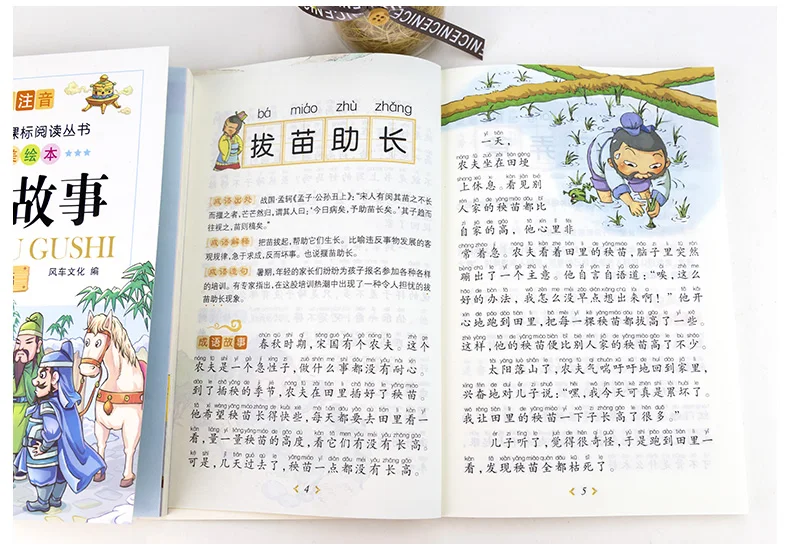 NICENICENICENICE
注音
课标阅读丛书
绘本
故事
GUSHI
风车文化 编
bá miáo zhù zhǎng
拔苗助长
成语出处 战国·孟轲《孟子·公孙丑上》：“宋人有闵其苗之不长
而揠之者，芒芒然归，谓其人曰：‘今日病矣，予助苗长矣。’其子趋而
往视之，苗则槁矣。”
成语解释 把苗拔起，帮助它们生长。比喻违反事物发展的客
观规律，急于求成，反而坏事。也说揠苗助长。
成语造句 暑期，年轻的家长们纷纷为孩子报名参加各种各样
的培训。有专家指出，在这股培训热潮中出现了一种令人担忧的拔
苗助长现象。
成语故事 春秋时期，宋国有个农夫。这个
农夫是一个急性子，做什么事都没有耐心。
到了插秧的季节，农夫在田里插好了秧苗。
他希望秧苗长得快些，每天都要去田里看一
看，量一量秧苗的高度，看它们有没有长高。
可是，几天过去了，秧苗一点都没有长高。
4
一天，
农夫坐在田埂
上休息。看见别
人家的秧苗都比
自家的高，他心里非
常着急。农夫看着田里的秧苗，脑子里突然
蹦出了一个主意。他自言自语道：“唉，这么
好的办法，我怎么没早点想出来啊！”他开
心地跑到田里，把每一棵秧苗都拔高了一些。
这样，他的秧苗便比别人家的秧苗高了不少。
太阳落山了，农夫气喘吁吁地回到家里，
兴奋地对儿子说：“嘿，我今天可真是累坏了。
我让田里的秧苗一下子长高了很多。”
儿子听了，觉得很奇怪，于是跑到田里一
看，发现秧苗全都枯死了。
5